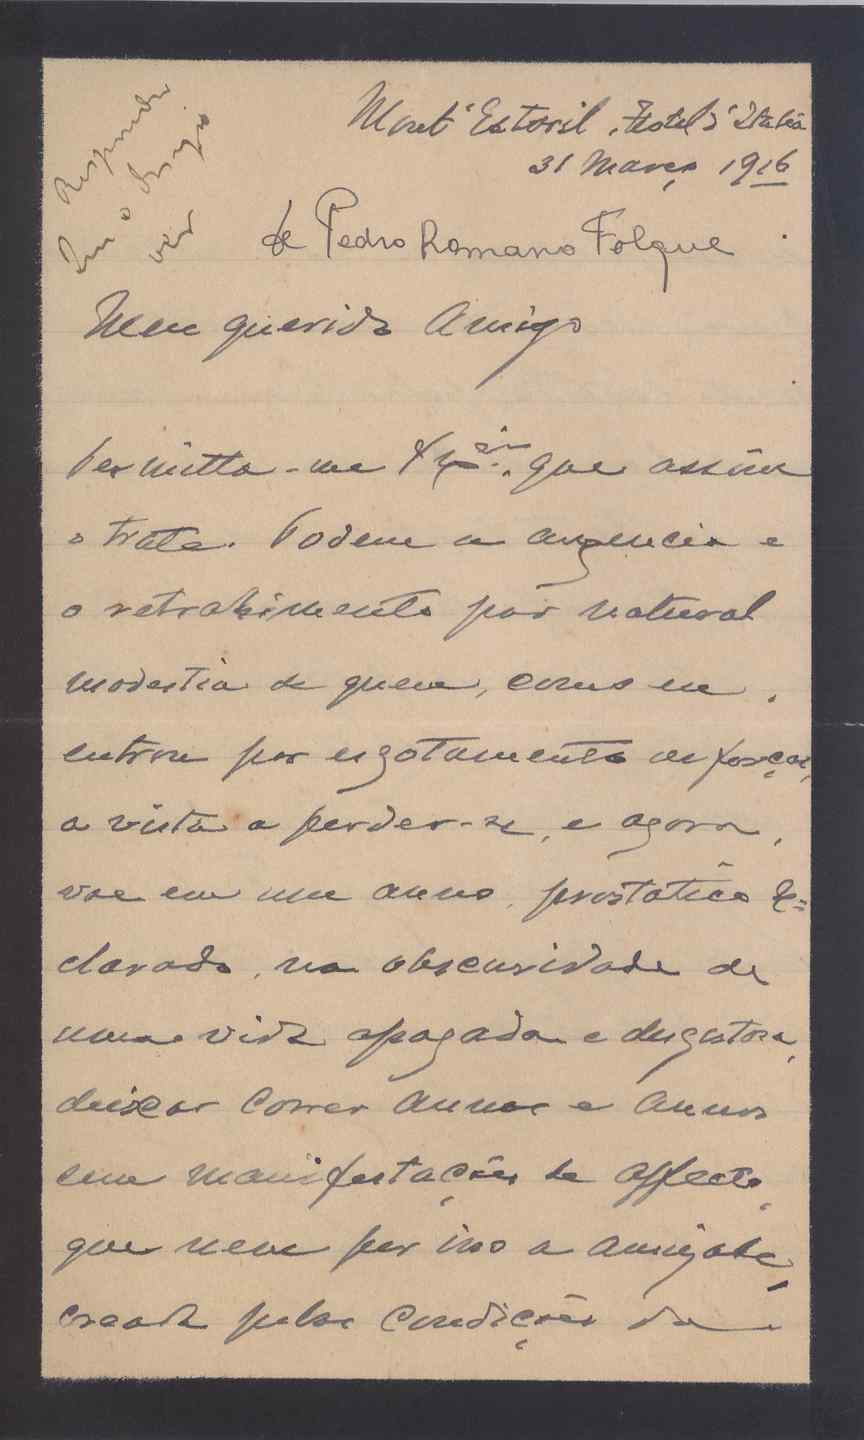 Mont'Estoril, Hotel d'Italia
31 Março 1916
Respondido
de Pedro Romano Folque
Meu querido Amigo
Permitta-me V. Exª. que assim
o trate. Podem a auzencia e
o retrahimento por natural
modestia de quem, como eu,
entrou por exgotamento de forças,
a vista a perder-se, e agora,
vae em um anno, prostatico de=
clarado, na obscuridade de
uma vida apagada e desgostosa,
deixar correr annos e annos
sem manifestações de affecto,
que nem por isso a amizade,
creada pelas condições da